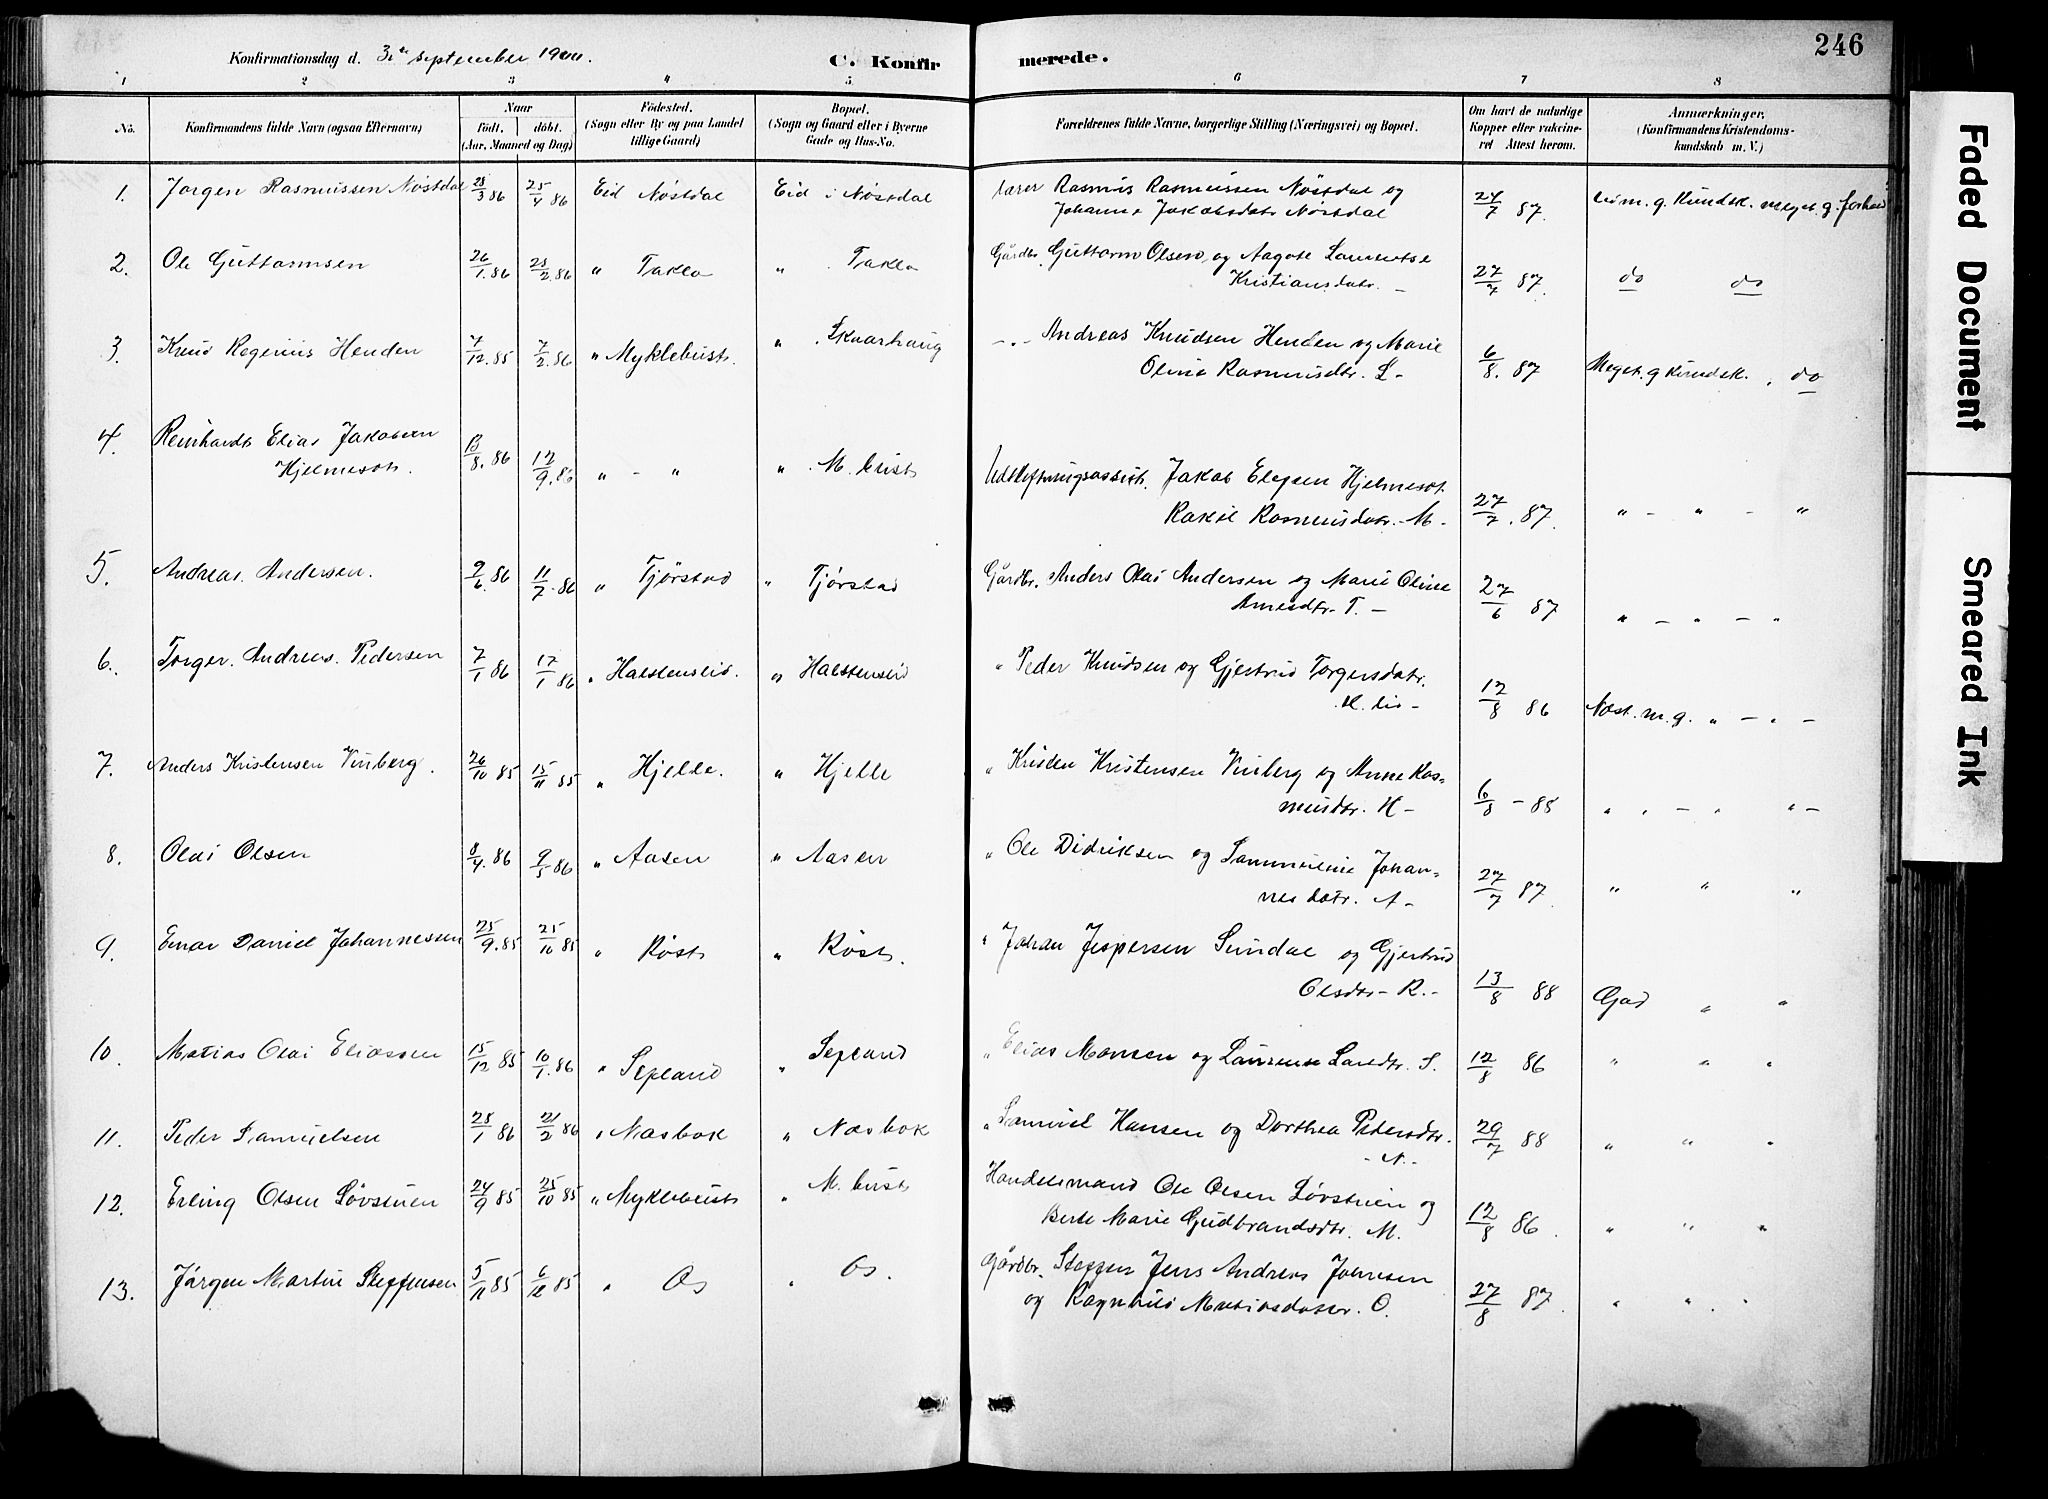 246
Konfirmationsdag d. 3die september 1900.
C. Konfirmerede.
1 2 3 4 5 6 7 8
No.
Konfirmandens fulde Navn (ogsaa Efternavn)
Naar
födt. döbt.
(Aar, Maaned og Dag)
Födested.
(Sogn eller By og paa Landet
tillige Gaard)
Bopæl.
(Sogn og Gaard eller i Byerne
Gade og Hus-No.
Forældrenes fulde Navne, borgerlige Stilling (Næringsvei) og Bopæl.
Om havt de naturlige
Kopper eller vakcine-
ret Attest herom.
Anmærkninger,
(Konfirmandens Kristendoms-
kundskab m. V.)
1. Jørgen Rasmussen Nøstdal 28/3 86 25/4 86 Eid Nøstdal Eid i Nøstdal Lærer Rasmus Rasmussen Nøstdal og
Johanne Jakobsdatr Nøstdal 24/7 87. Udm. g. Kundsk. meget g. forhold
2. Ole Guttormsen 26/1. 86 28/2. 86 " Taklo " Taklo Gårdbr. Guttorm Olsen og Aagote Laurentse
Kristiansdatr. - 27/7 87. do do
3. Knud Regenius Henden 7/12. 85 7/2. 86 " Myklebust. " Skvarhaug -"- Andreas Knudsen Henden og Marie
Oline Rasmusdtr. S- 6/8. 87 Meget g Kundsk. , do
4. Reinhardt Elias Jakobsen
Hjelmeset. 10/8. 86 12/9. 86 " - " " M.bust Udskiftningsassist. Jakob Elefsen Hjelmeset
Rakel Rasmusdatr. M- 27/7. 87. " - " - "
5. Andreas Andersen. 9/6. 86 11/7. 86 " Tjørstad " Tjørstad Gårdbr. Anders Olai Andersen og Marie Oline
Arnesdtr. T. - 27/6 87 " - " - "
6. Torger. Andreas. Pedersen 7/1 86 17/1 86 " Halstenslid. " Halstenslid " Peder Knudsen og Gjertrud Torgersdatr.
H. lid - 12/8 86 Næst. m. g. " - " -
7. Anders Kristensen Vinberg. 26/10 85 15/11 85 " Hjelle. " Hjelle " Kristen Kristensen Vinberg og Anne Ras-
musdtr. H - 6/8 - 85 " " - " " -
8. Olai Olsen 8/4. 86 9/5 86 " Aasen " Aasen " Ole Didriksen og Sammueline Johan-
nesdatr. A - 27/7 87 " " "
9. Einar Daniel Johannessen 25/9. 85 25/10 85 " Røst " Røst. " Johan Jespersen Sundal og Gjertrud
Olsdtr - R. - 13/8 88 God " "
10. Matias Olai Eliassen 15/12 85 10/1. 86 " Sepland " Sepland " Elias Monsen og Laurense Larsdtr. S. 12/8 86 " " "
11. Peder Samuelsen 28/1 86 21/2 86 " Næsbak " Næsbak " Samuel Hansen og Dorthea Pedersdtr.
- N. - 29/7 88 " " "
12. Erling Olsen Løvstuen 24/9 85 25/10 85 " Myklebust " M.bust Handelsmand Ole Olsen Løvstuen og
Berte Marie Gudbrandsdtr. M. 12/8 86. " " "
13. Jørgen Martin Steffensen 5/11 85 6/12 85 " Os " Os. Gårdbr. Steffen Jens Andreas Johnsen
og Ragnhild Matiasdatter. O. 27/8 87. " " "
Faded Document
Smeared Ink